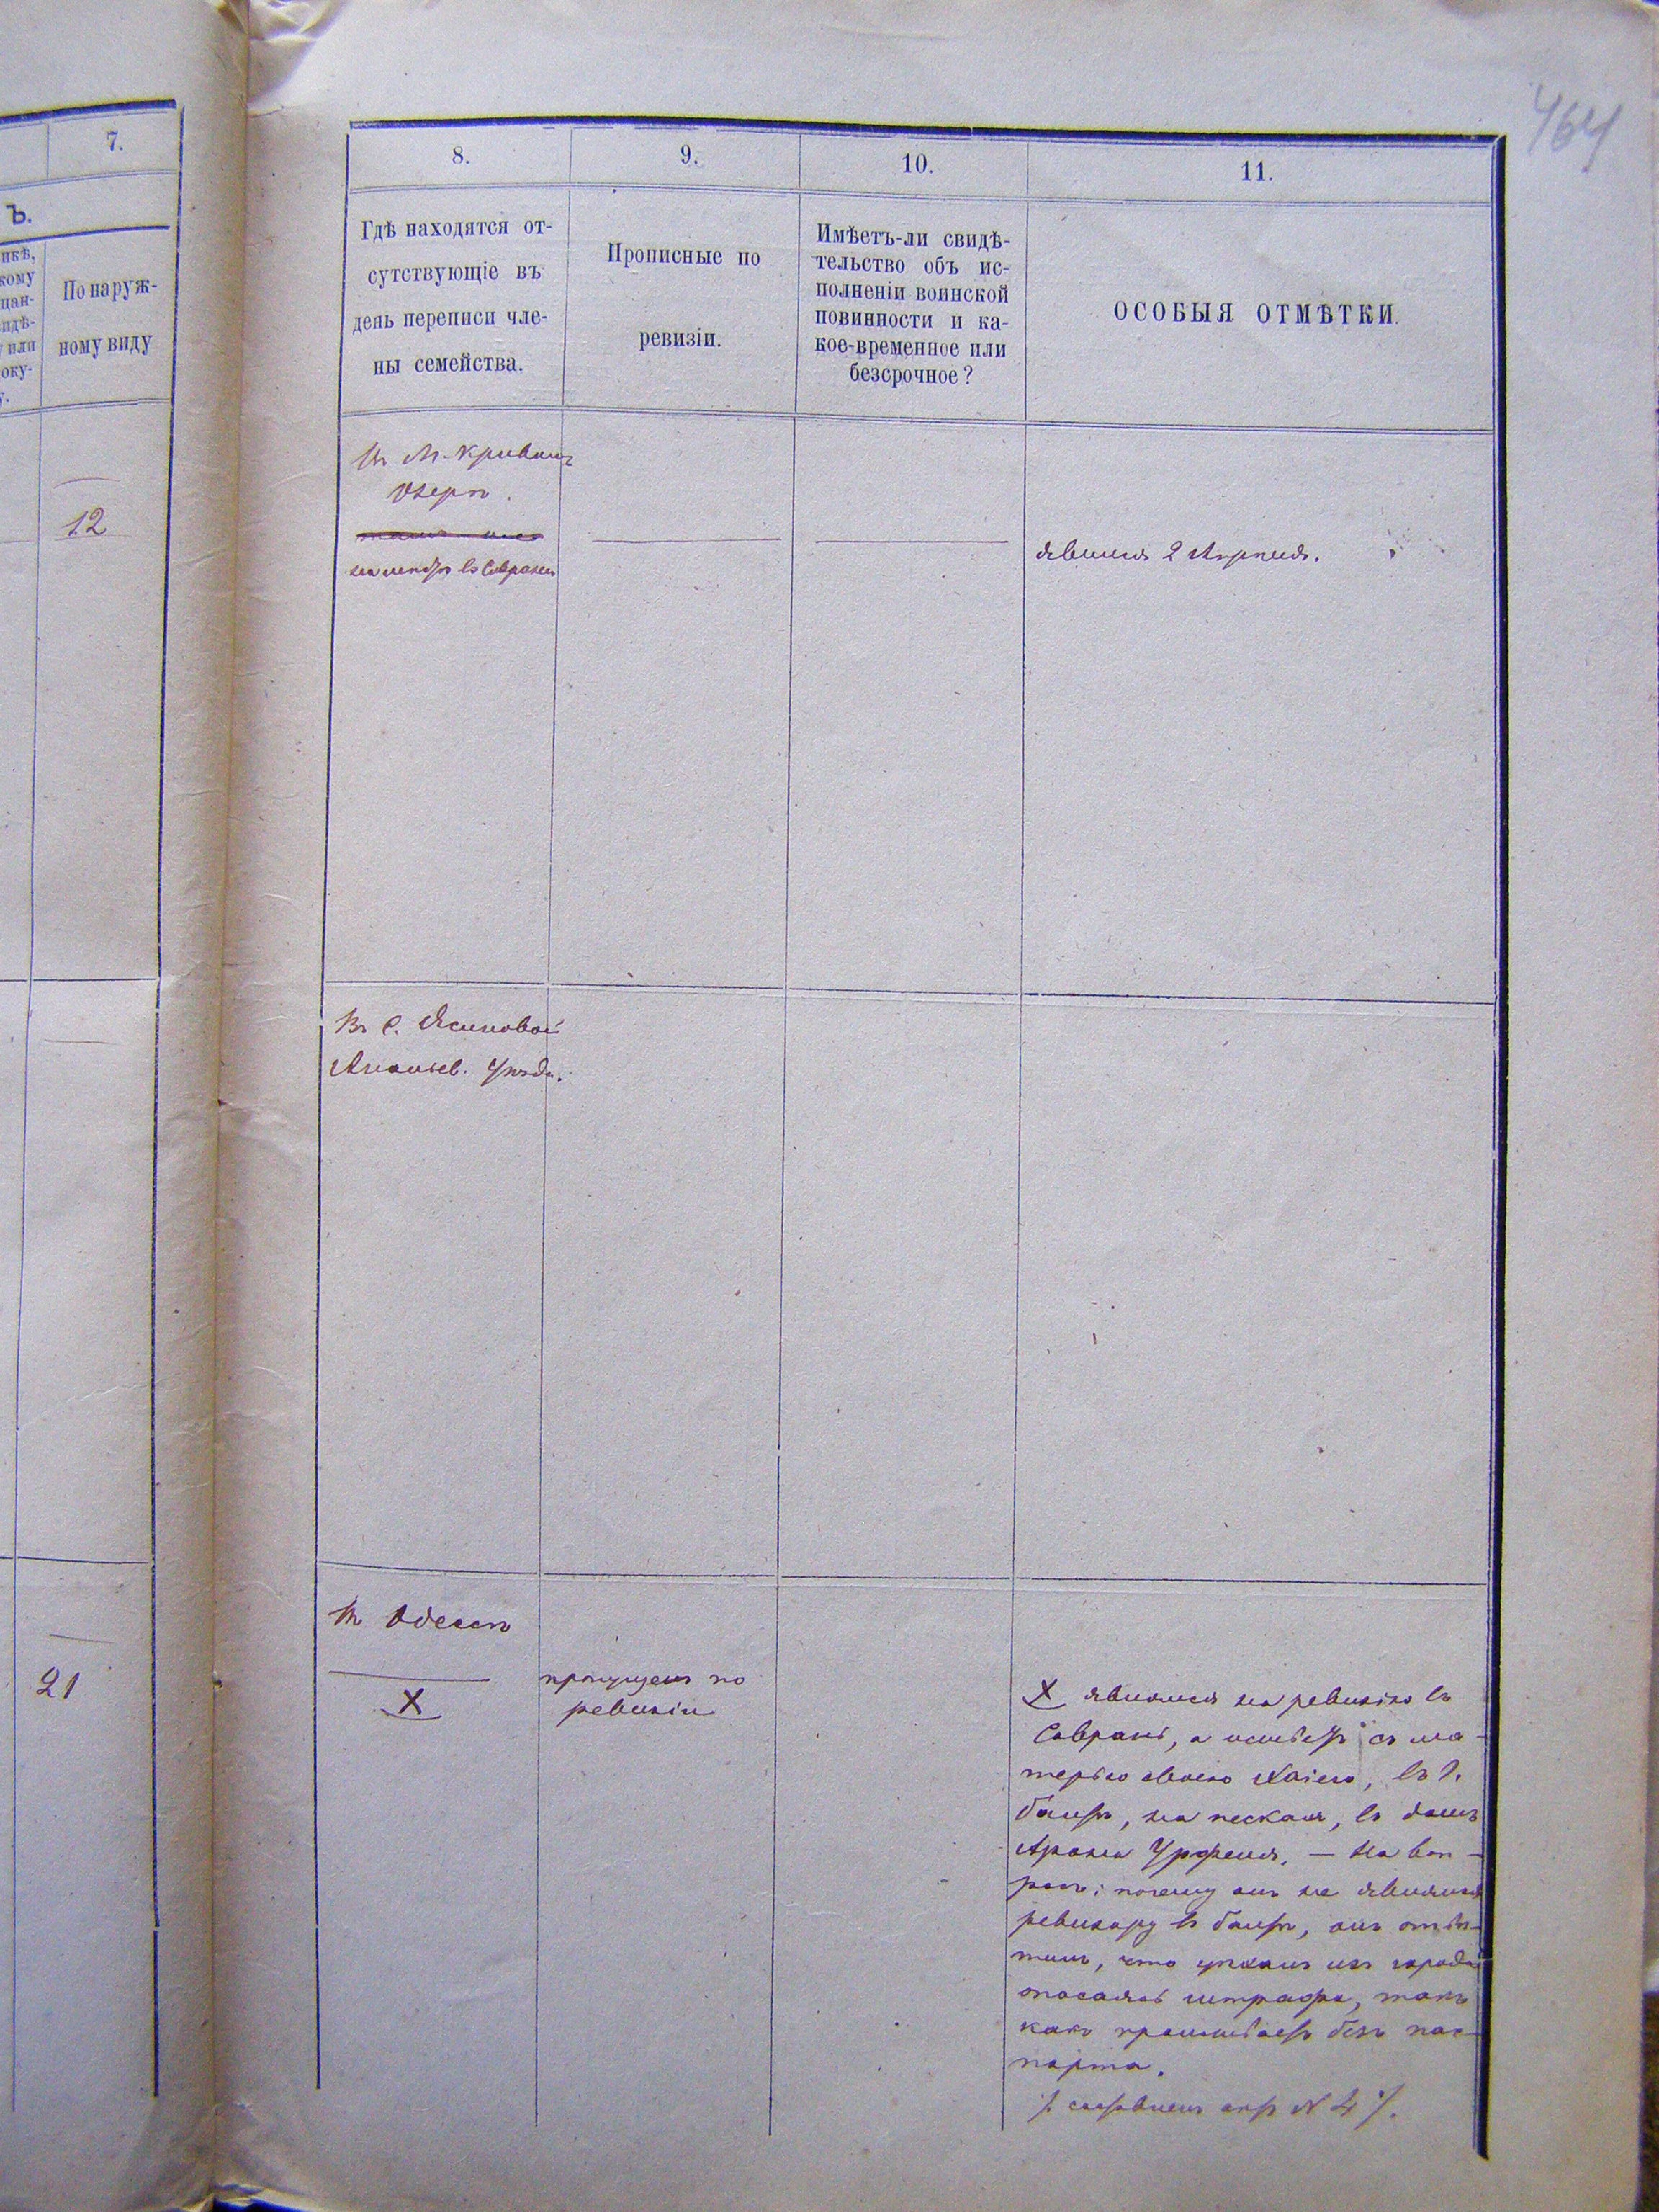 464
7.
Ъ.
По наруж-
ному виду
12
21
8.
Гдѣ находятся от-
сутствующіе въ
день переписи чле-
ны семейства.
9.
Прописные по
ревизіи.
10.
Имѣетъ-ли свидѣ-
тельство объ ис-
полненіи воинской
повинности и ка-
кое-временное или
безсрочное?
11.
ОСОБЫЯ ОТМѢТКИ.
въ М. Кривомъ
Озерѣ.
въ Саврани
явился 2 Апрѣля.
Въ С. Ясиновой
Ананьев. Уѣзда.
въ Одессѣ
X
пропущенъ по
ревизіи
X явился на ревизію въ
Саврань, а живетъ съ ма-
терью своею Хаіею, въ г.
Балтѣ, на пескахъ, въ домѣ
Арона — На воп-
росъ: почему онъ не явился
ревизору въ Балтѣ, онъ отвѣ-
тилъ, что уѣхалъ изъ города
опасаясь штрафа, такъ
какъ проживаетъ безъ пас-
порта.
/. составленъ актъ N 4 /.